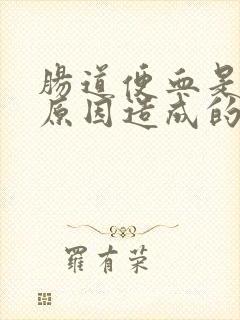 腸道便血是
原因造成的
羅有荣